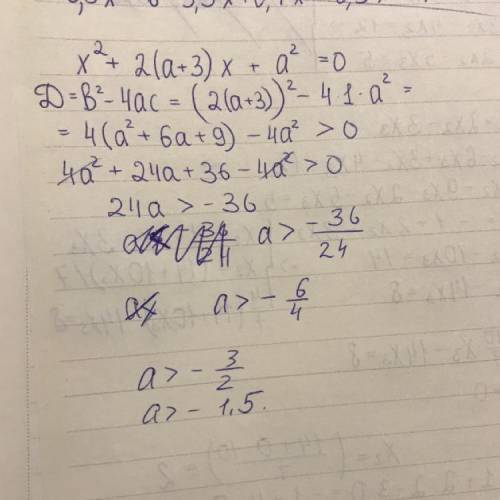 x² + 2(a+3)x + a² = 0
D = B² - 4ac = (2(a+3))² - 4·1·a² =
= 4(a² + 6a + 9) - 4a² > 0
4a² + 24a + 36 - 4a² > 0
24a > - 36
a > -36/24
a > - 6/4
a > - 3/2
a > - 1,5.